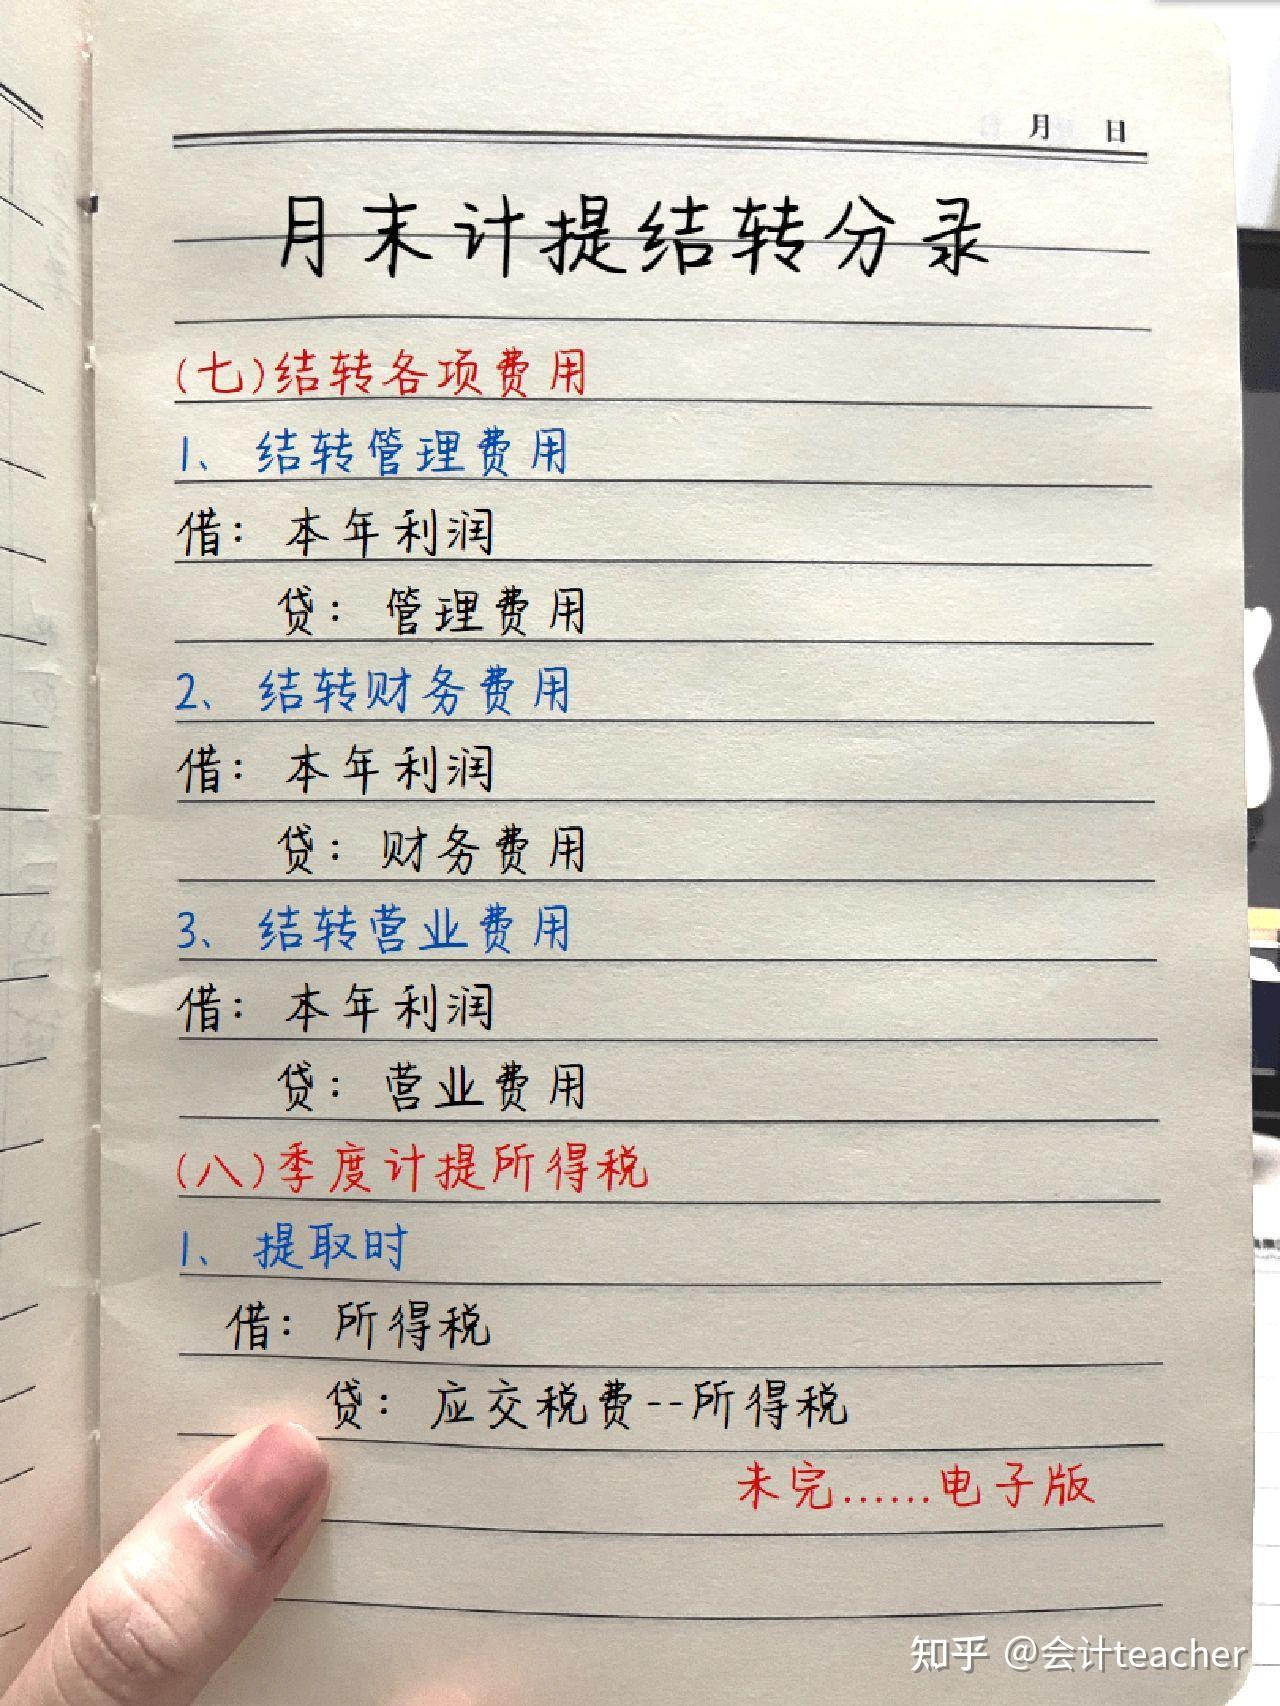 月 日
月末计提结转分录
(七)结转各项费用
1、结转管理费用
借：本年利润
贷：管理费用
2、结转财务费用
借：本年利润
贷：财务费用
3、结转营业费用
借：本年利润
贷：营业费用
(八)季度计提所得税
1、提取时
借：所得税
贷：应交税费--所得税
未完......电子版
知乎 @会计teacher